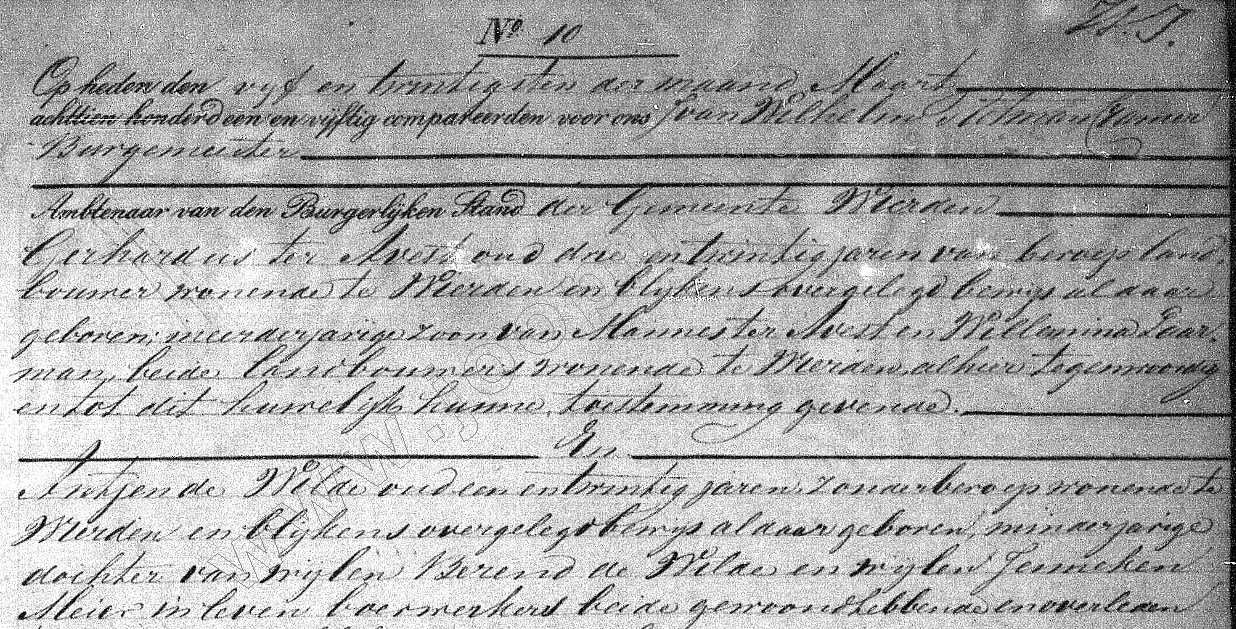 No. 10
Op heden den vijf en twintigsten der maand Maart
achttien honderd een en vijftig compareerden voor ons Jvan Wilhelm
Burgemeester
Ambtenaar van den Burgerlijken Stand der Gemeente Wierden
Gerhardus ter Avest oud drie en twintig jaren van beroep land,
bouwer wonende te Wierden en blijkens overgelegd bewijs aldaar
geboren, meerderjarige zoon van Mannes ter Avest en Willemina Paar,
man, beide landbouwers wonende te Wierden, alhier tegenwoordig
en tot dit huwelijk hunne toestemming gevende.
En
Antjen de Wilde oud een en twintig jaren zonder beroep wonende te
Wierden en blijkens overgelegd bewijs aldaar geboren, minderjarige
dochter van wijlen Berend de Wilde en wijlen Jenneken
Meier in leven boerwerkers beide gewoond hebbende en overleden